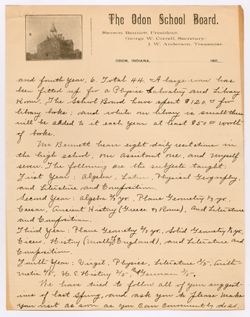 The Odon School Board.
George W. Correll, Secretary
J. W. Anderson, Treasurer
ODON, INDIANA,
and fourth year, 6. Total 44. A large room has
been fitted up for a Physics Laboratory and Library
Room. The School Board have spent $120.00 for
library books; and while our library is small there
will be added to it each year at least $50.00 worth
of books.
Mr Bennett hears eight daily recitations in
the high school, an assistant one, and myself
seven. The following are the subjects taught
First Year: Algebra, Latin, Physical Geography
and Literature and Composition.
Second Year: Algebra ½ yr. Plane Geometry ½ yr.
Caesar, Ancient History (Greece & Rome), and Literature
and Composition.
Third Year: Plane Geometry ½ yr. Solid Geometry ½ yr.
Cicero, History England), and Literature and
Composition
Fourth Year: Virgil, Physics, Literature
U.S. History German
We have tried to follow all of your suggest-
ions of last Spring, and ask you to please make
your visit as soon as you can conveniently do so.